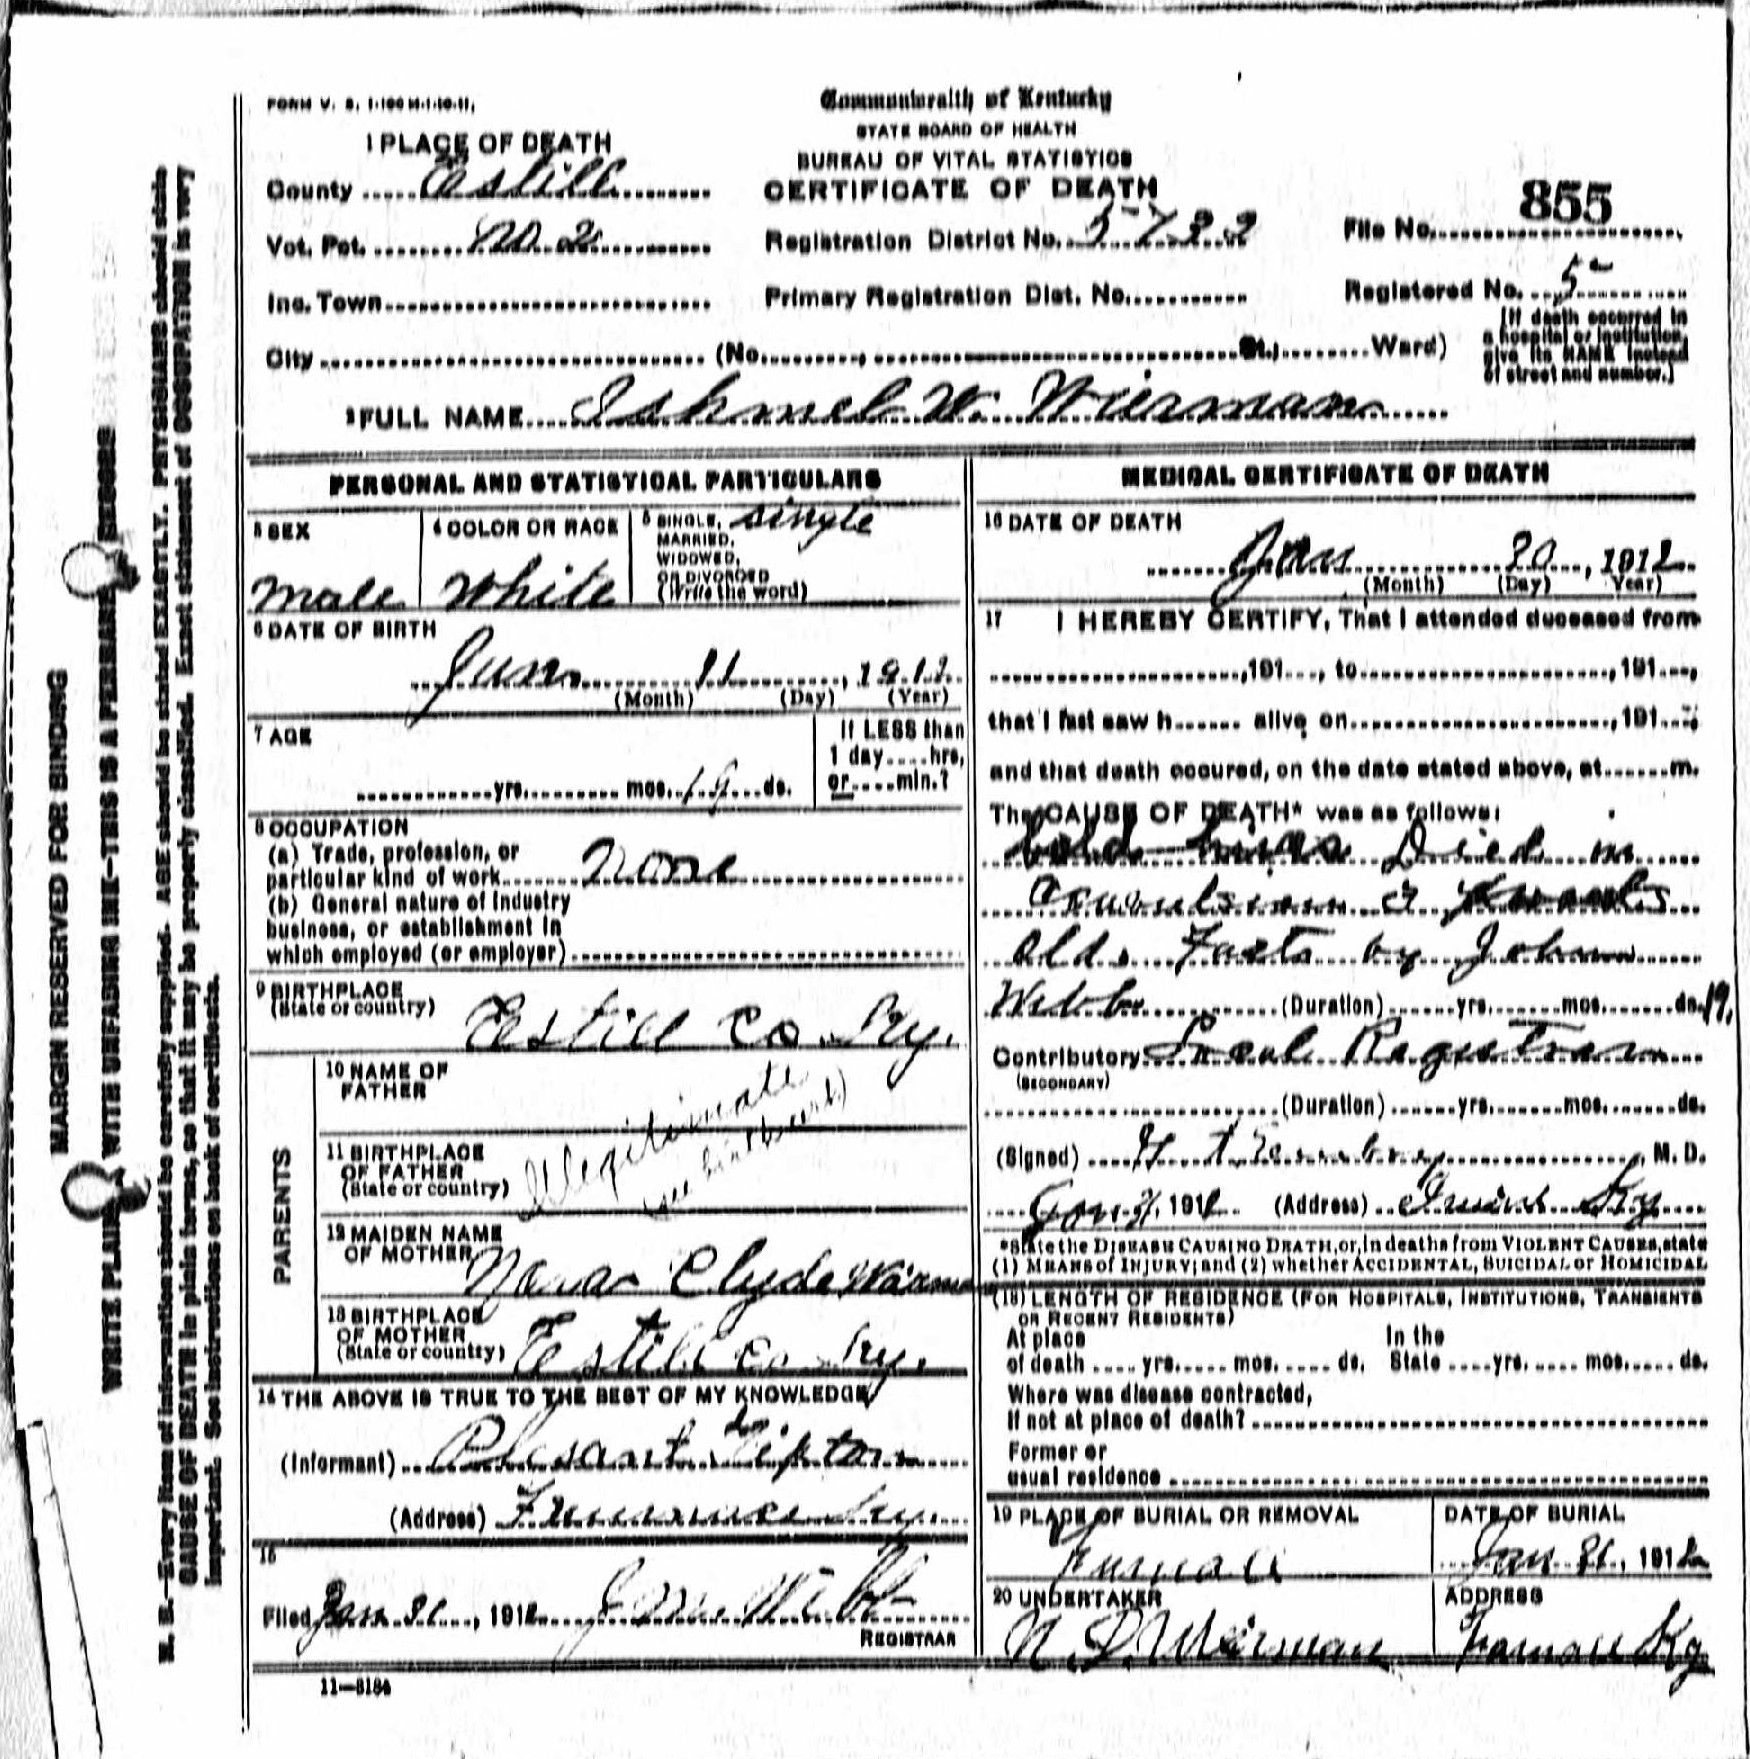 FORM V. S. 1-100 M-1-10-11.
Commonwealth of Kentucky
STATE BOARD OF HEALTH
BUREAU OF VITAL STATISTICS
CERTIFICATE OF DEATH
1 PLACE OF DEATH
County Estill
Vot. Pct. No. 2
Registration District No. 5722
File No. 855
Inc. Town
Primary Registration Dist. No.
Registered No. 5
City (No. St., Ward)
(If death occurred in
a hospital or institution,
give its NAME instead
of street and number.)
2 FULL NAME Ishmel W. Wireman
MARGIN RESERVED FOR BINDING
WRITE PLAINLY WITH UNFADING INK—THIS IS A PERMANENT RECORD
N. B.—Every item of information should be carefully supplied. AGE should be stated EXACTLY. PHYSICIANS should state
CAUSE OF DEATH in plain terms, so that it may be properly classified. Exact statement of OCCUPATION is very
important. See instructions on back of certificate.
PERSONAL AND STATISTICAL PARTICULARS
3 SEX
Male
4 COLOR OR RACE
White
5 SINGLE, single
MARRIED,
WIDOWED,
OR DIVORCED
(Write the word)
6 DATE OF BIRTH
11, 1912
(Month) (Day) (Year)
7 AGE
yrs. mos. 19 ds.
If LESS than
1 day hrs.
or min.?
8 OCCUPATION
(a) Trade, profession, or
particular kind of work None
(b) General nature of industry
business, or establishment in
which employed (or employer)
9 BIRTHPLACE
(State or country) Estill Co Ky.
PARENTS
10 NAME OF
FATHER
Illegitimate
11 BIRTHPLACE
OF FATHER
(State or country)
12 MAIDEN NAME
OF MOTHER Clyde
13 BIRTHPLACE
OF MOTHER
(State or country) Estill Co. Ky.
14 THE ABOVE IS TRUE TO THE BEST OF MY KNOWLEDGE
(Informant) Plesant Tipton
(Address) Furnace Ky.
15
Filed Jan 1912 Webb
REGISTRAR
11—3184
MEDICAL CERTIFICATE OF DEATH
16 DATE OF DEATH
Jan 1912
(Month) (Day) Year)
17 I HEREBY CERTIFY, That I attended deceased from
,191 , to ,191 ,
that I last saw h alive on ,191 ;
and that death occured, on the date stated above, at m.
The CAUSE OF DEATH* was as follows:
Died in
old. Facts by John
Webb (Duration) yrs. mos. ds. 19.
Contributory Local Registrar
(SECONDARY)
(Duration) yrs. mos. ds.
(Signed) M. D.
191 (Address) Ky
*State the DISEASE CAUSING DEATH, or, in deaths from VIOLENT CAUSES, state
(1) MEANS of INJURY; and (2) whether ACCIDENTAL, SUICIDAL or HOMICIDAL
(18) LENGTH OF RESIDENCE (FOR HOSPITALS, INSTITUTIONS, TRANSIENTS
OR RECENT RESIDENTS)
At place
of death yrs. mos. ds.
In the
State yrs. mos. ds.
Where was disease contracted,
if not at place of death?
Former or
usual residence
19 PLACE OF BURIAL OR REMOVAL
Furnace
DATE OF BURIAL
Jan 1912
20 UNDERTAKER
Wireman
ADDRESS
Furnace Ky